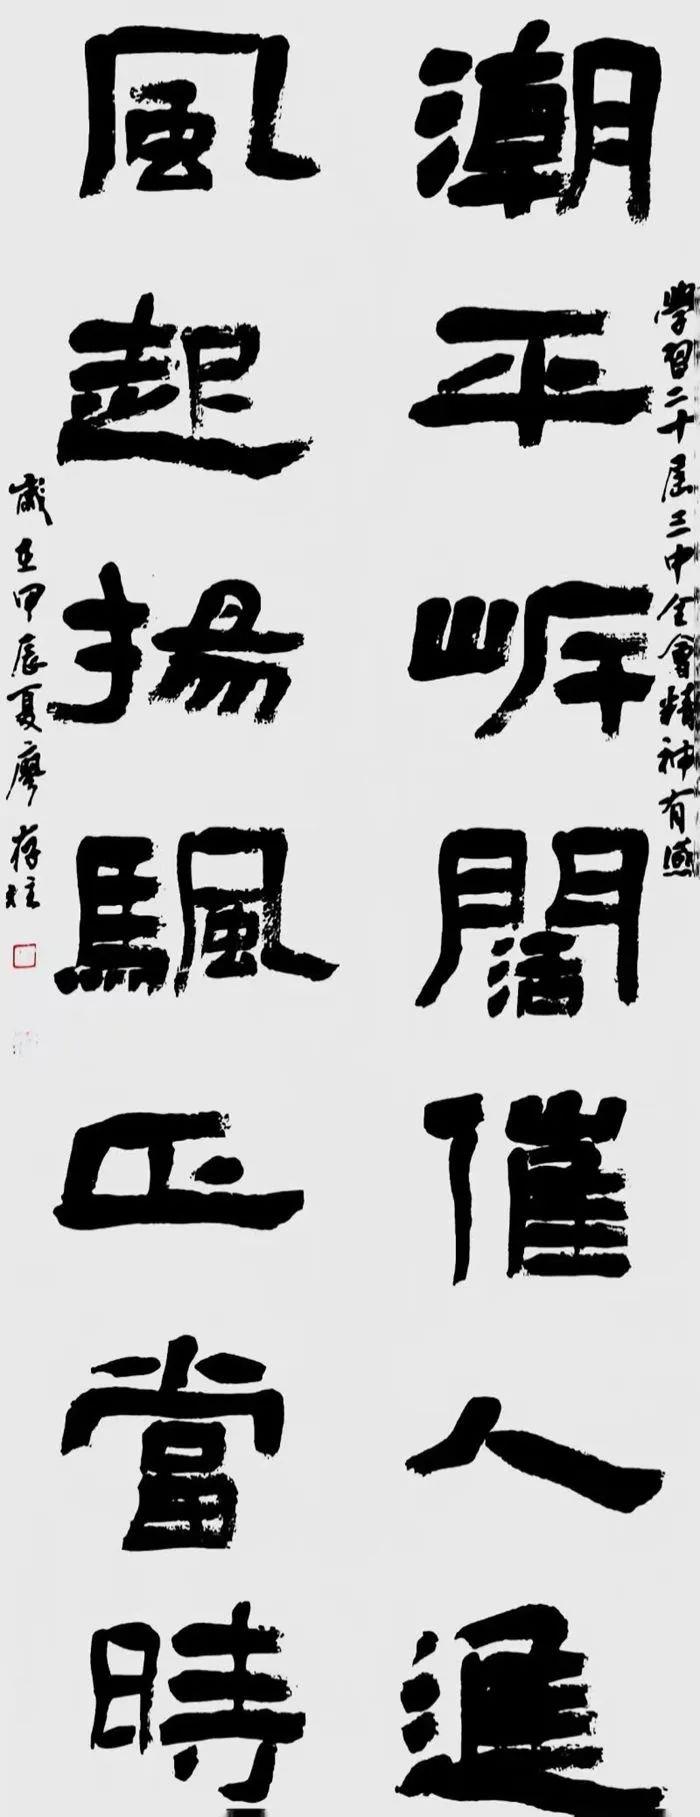 學習二十屆三中全會精神有感
潮平岸闊催人進
風起揚颿正當時
歲在甲辰夏廖存